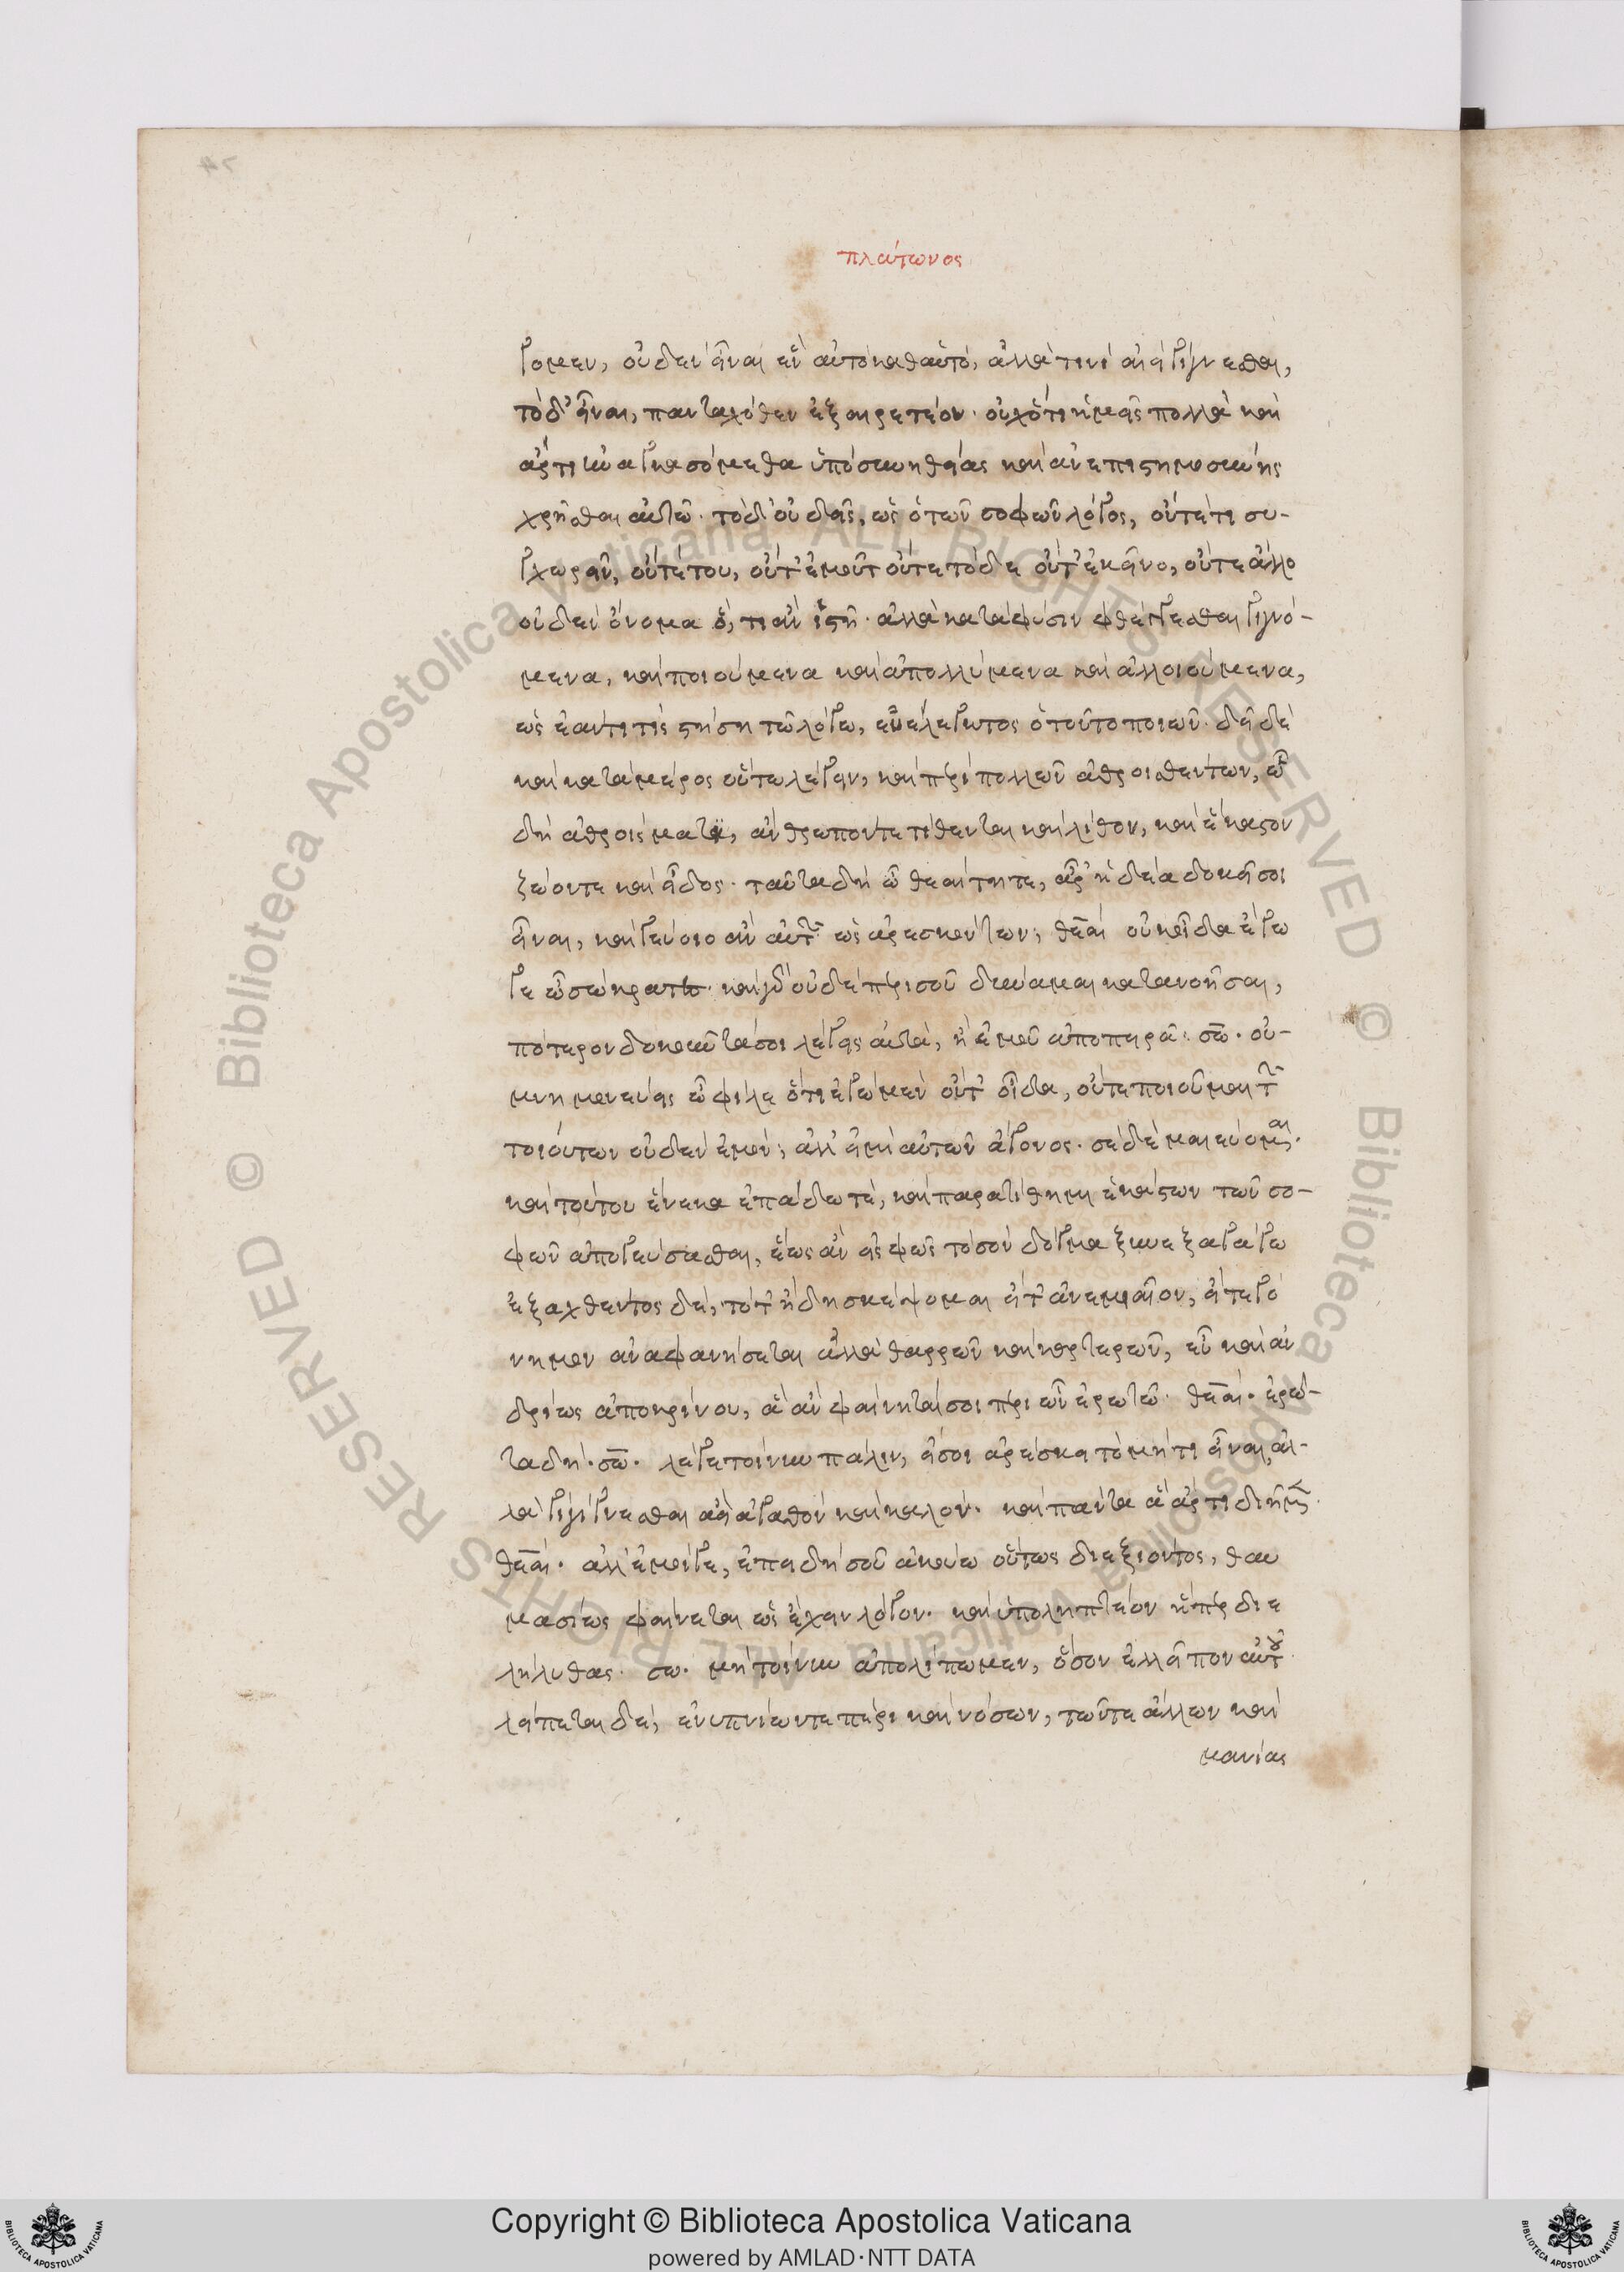 πλάτωνος
γομεν, οὐδὲν εἶναι ἓν αὐτὸ καθ' αὑτό, ἀλλά τινι ἀεὶ γίγνεσθαι,
τὸ δ' εἶναι, πανταχόθεν ἐξαιρετέον· οὐχ ὅτι ἡμεῖς πολλὰ καὶ
ἄρτι ἠναγκασόμεθα ὑπὸ συνηθείας καὶ ἀνεπιστημοσύνης
χρῆσθαι αὐτῶ· τὸ δ' οὐ δεῖ, ὡς ὁ τῶν σοφῶν λόγος, οὔτέ τι συ-
γχωρεῖν, οὔτέ του, οὔτ' ἐμοῦ οὔτε τόδε οὔτ' ἐκεῖνο, οὔτε ἄλλο
οὐδὲν ὄνομα ὅ, τι ἂν ἱστῆ· ἀλλὰ κατὰ φύσιν φθέγγεσθαι γιγνό-
μενα, καὶ ποιούμενα καὶ ἀπολλύμενα καὶ ἀλλοιούμενα,
ὡς ἐάν τι τὶς στήση τῶ λόγω, εὐέλεγκτος ὁ τοῦτο ποιῶν· δεῖ δὲ
καὶ κατὰ μέρος οὕτω λέγειν, καὶ περὶ πολλῶν ἀθροισθέντων, ὧ
δὴ ἀθροίσματι, ἄνθρωπόν τε τίθενται καὶ λίθον, καὶ ἕκαστον
ζῶόν τε καὶ εἶδος· ταῦτα δὴ ὦ θεαίτητε, ἆρ' ἡδέα δοκεῖ σοι
εἶναι, καὶ γεύοιο ἂν αὐτῶν ὡς ἀρεσκόντων; θεαί οὐκ οἶδα ἔγω
γε ὦ σώκρατες· καὶ γὰρ οὐδὲ περὶ σοῦ δύναμαι κατανοῆσαι,
πότερον δοκοῦντά σοι λέγεις αὐτά, ἢ ἐμοῦ ἀποπειρᾶ· σω. οὐ-
μνημονεύεις ὦ φίλε ὅτι ἐγὼ μὲν οὔτ' οἶδα, οὔτε ποιοῦμαι τῶν
τοιούτων οὐδὲν ἐμόν; ἀλλ' εἰμὶ αὐτῶν ἄγονος· σὲ δὲ μαιεύομαι·
καὶ τούτου ἕνεκα ἐπάδω τέ, καὶ παρατίθημι ἑκάστων τῶν σο-
φῶν ἀπογεύσασθαι, ἕως ἂν εἰς φῶς τὸ σὸν δόγμα ξυνεξαγάγω
ἐξαχθέντος δέ, τότ' ἤδη σκέψομαι εἴτ' ἀνεμιαῖον, εἴτε γό
νιμον ἀναφανήσεται ἀλλὰ θαρρῶν καὶ καρτερῶν, εὖ καὶ ἀν
δρείως ἀποκρίνου, ἃ ἂν φαίνηταί σοι περὶ ὧν ἐρωτῶ· θεαί· ἐρώ-
τα δή· σω· λέγε τοίνυν πάλιν, εἴ σοι ἀρέσκει τὸ μή τι εἶναι, ἀλ-
λὰ γίγνεσθαι ἀεὶ ἀγαθὸν καὶ καλόν· καὶ πάντα ἃ ἄρτι διῆμεν·
θεαί· ἀλλ' ἔμοιγε, ἐπειδὴ σοῦ ἀκούω οὕτως διεξιόντος, θαυ
μασίως φαίνεται ὡς ἔχειν λόγον· καὶ ὑποληπτέον ᾗπερ διε
λήλυθας· σω· μὴ τοίνυν ἀπολίπωμεν, ὅσον ἐλλεῖπον αὐτοῦ·
λείπεται δέ, ἐνυπνίων τε πέρι καὶ νόσων, τῶν τε ἄλλων καὶ
μανίας
Copyright © Biblioteca Apostolica Vaticana
powered by AMLAD·NTT DATA
© Biblioteca Apostolica Vaticana ALL RIGHTS RESERVED
© Biblioteca Apostolica Vaticana ALL RIGHTS RESERVED
BIBLIOTECA APOSTOLICA VATICANA
BIBLIOTECA APOSTOLICA VATICANA